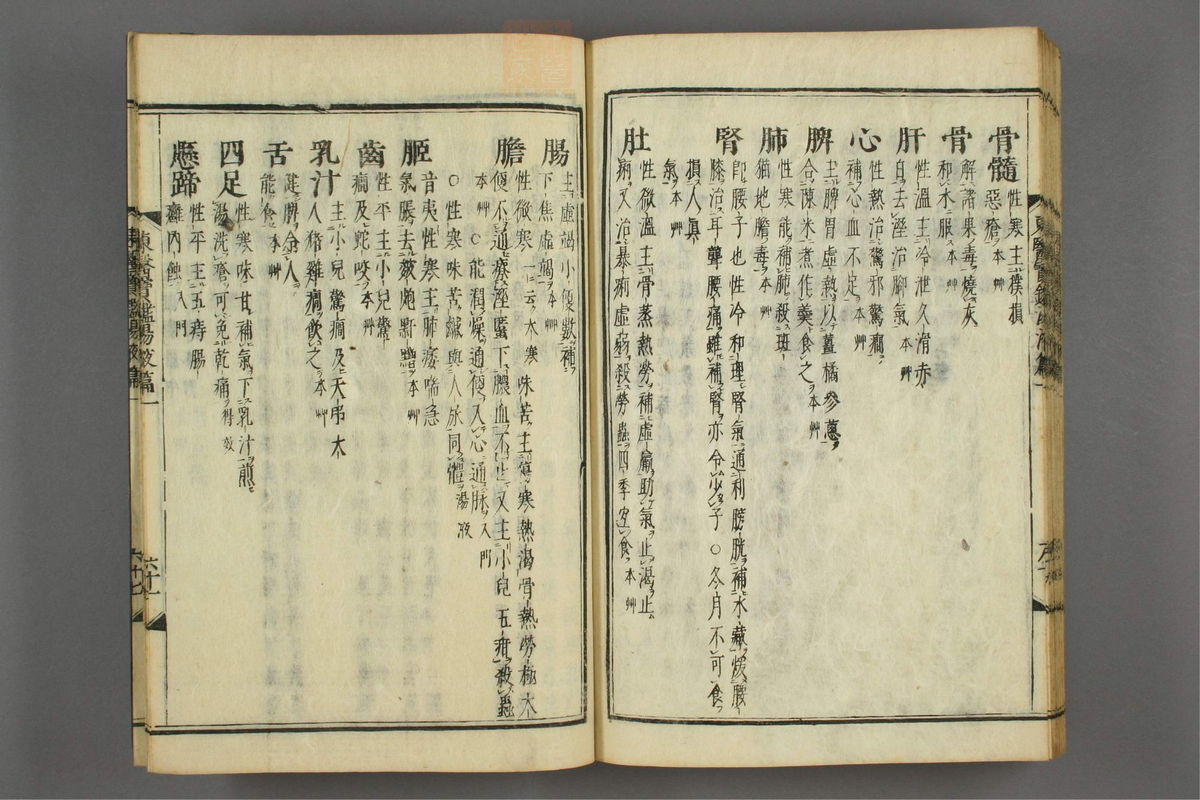 骨髓 性寒主撲損
惡瘡 本艸
骨 解諸果毒燒灰
和水服 本艸
肝 性溫主冷泄久滑赤
白去溼治脚氣 本艸
心 性熱治驚邪驚癎
補心血不足 本艸
脾 主脾胃虛熱以薑橘參蔥
合陳米煮作羹食之 本艸
肺 性寒能補肺殺斑
猫地膽毒 本艸
腎 卽腰子也性冷和理腎氣通利膀胱補水藏煖腰
膝治耳聾腰痛雖補腎亦令少子○冬月不可食
損人眞
氣 本艸
肚 性微溫主骨蒸熱勞補虛羸助氣止渴止
痢又治暴痢虛弱殺勞蟲四季宜食 本艸
腸 主虛渴小便數補
下焦虛竭 本艸
膽 性微寒 一云大寒 味苦主傷寒熱渴骨熱勞極大
便不通療溼䘌下膿血不止又主小兒五疳殺蟲
本艸○能潤燥通便入心通脉 入門
○性寒味苦鹹與人尿同體 湯液
䐅 音夷性寒主肺痿喘急
氣脹去皴皰䵟䵳 本艸
齒 性平主小兒驚
癎及蛇咬 本艸
乳汁 主小兒驚癎及天吊大
人猪雞癎飮之 本艸
舌 健脾令人
能食 本艸
四足 性寒味甘補氣下乳汁煎
湯洗瘡可免乾痛 得效
懸蹄 性平主五痔腸
癰內蝕 入門
東醫寶鑑湯液篇一